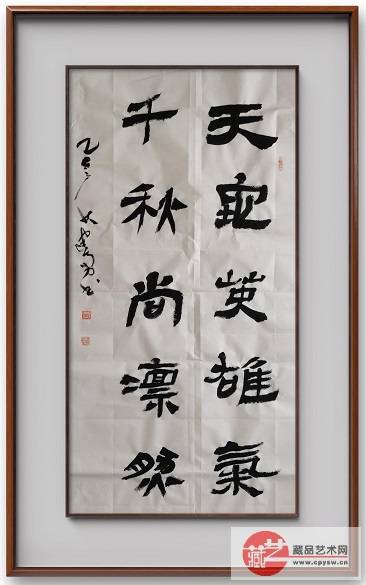 天地英雄氣
千秋尚凛然
乙巳
书
藏艺
藏品艺术网
www.cpysw.cn